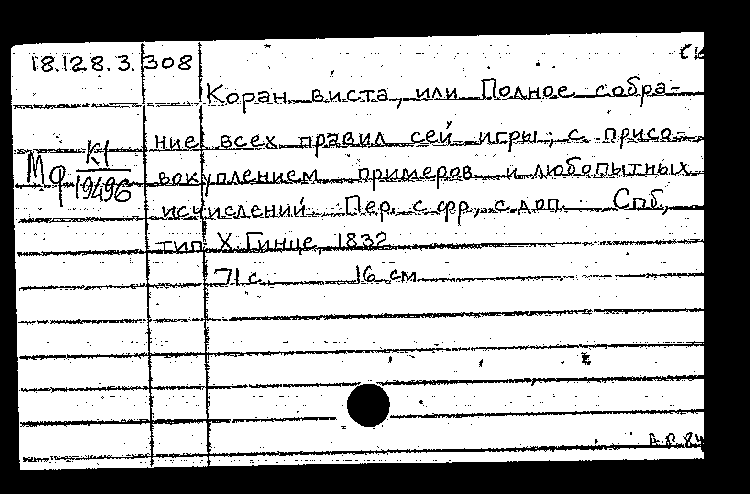 18.128.3.308
Коран виста, или Полное собра-
ние всех правил сей игры; с присо-
вокуплением примеров и любопытных
исчислений. Пер. с фр., с доп. Спб,
тип. Х. Гинце, 1832
71 с. 16 см
Мф К1
19496